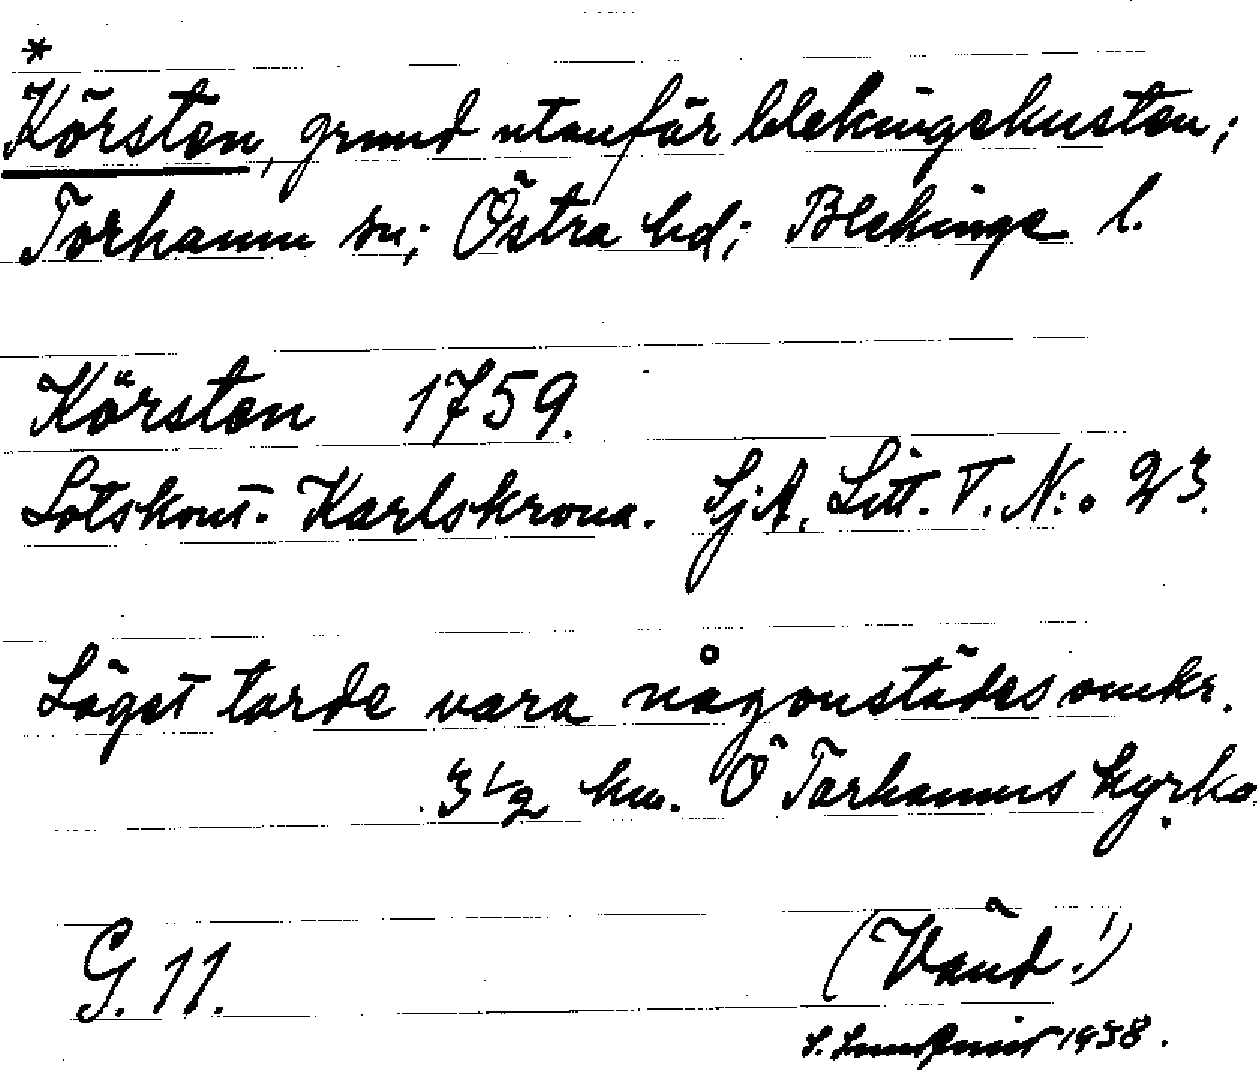 *
Körsten, grund utanför blekingekusten;
Torhamn sn; Östra hd; Blekinge l.
Körsten 1759.
Lotskont. Karlskrona. SjA, Litt. T. N:o 23.
Läget torde vara någonstädes omkr.
3 1/2 km. Ö Torhamns kyrka.
G. 11.
(Vänd!)
1958.